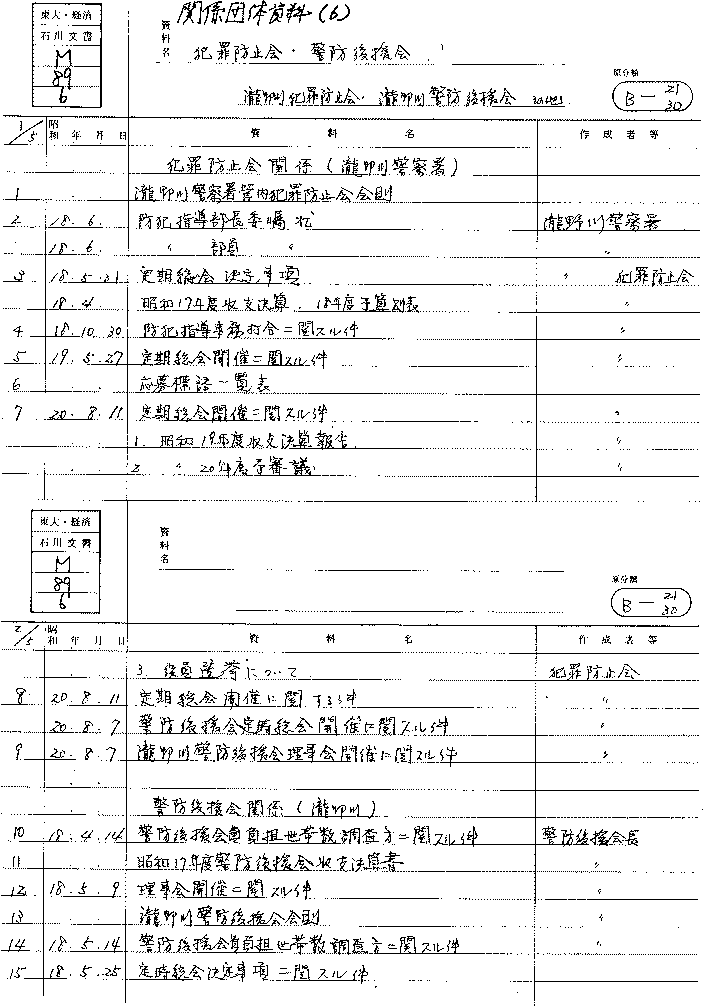 東大・経済
石川文書
M
89
6
関係団体資料(6)
資料名
犯罪防止会・警防後援会
瀧野川犯罪防止会・瀧野川警防後援会
原分類
B－21/30
1/5 昭和 年 月 日 資料名 作成者等
犯罪防止会関係(瀧野川警察署)
1 瀧野川警察署管内犯罪防止会会則
2 18.6. 防犯指導部長委嘱 瀧野川警察署
18.6 〃 部員 〃 〃
3 18.5.21 定期総会決定事項 〃 犯罪防止会
18.4. 昭和17年度収支決算、18年度予算別表 〃
4 18.10.30 防犯指導事務打合ニ関スル件 〃
5 19.5.27 定期総会開催ニ関スル件 〃
6 応募標語一覧表
7 20.8.11 定期総会開催ニ関スル件 〃
1. 昭和19年度収支決算報告 〃
2 〃 20年度予審議 〃
東大・経済
石川文書
M
89
6
資料名
原分類
B－21/30
2/5 昭和 年 月 日 資料名 作成者等
3. 役員選挙について 犯罪防止会
8 20.8.11 定期総会開催に関する件 〃
20.8.7 警防後援会定時総会開催に関スル件 〃
9 20.8.7 瀧野川警防後援会理事会開催に関スル件 〃
警防後援会関係(瀧野川)
10 18.4.14 警防後援会員負担世帯数調査方ニ関スル件 警防後援会長
11 昭和17年度警防後援会収支決算書 〃
12 18.5.9 理事会開催ニ関スル件 〃
13 瀧野川警防後援会会則 〃
14 18.5.14 警防後援会員負担世帯数調査方ニ関スル件 〃
15 18.5.25 定時総会決定事項ニ関スル件 〃